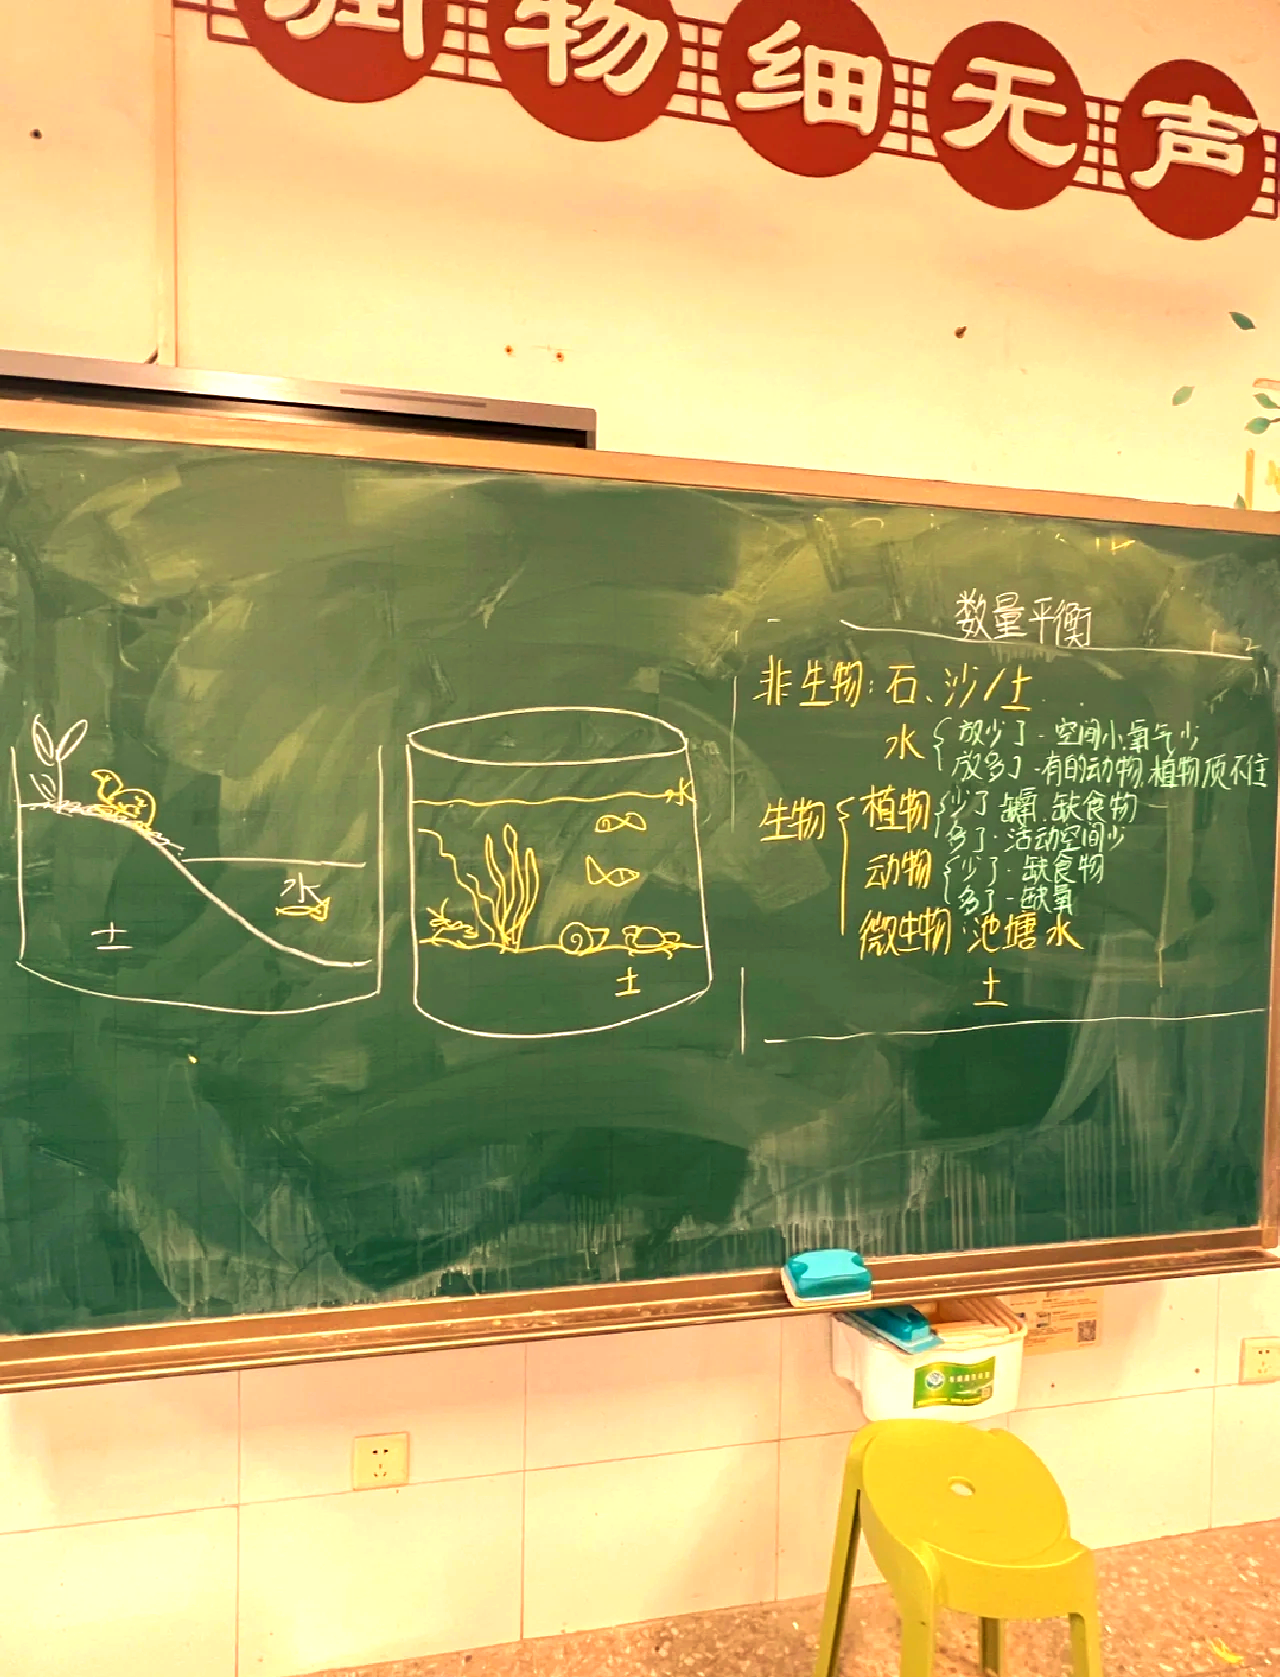 物细无声
数量平衡
非生物：石、沙/土
水
放少了·空间小氧气少
放多了·有的动物,植物顶不住
生物
植物
少了 缺氧.缺食物
多了·活动空间少
动物
少了·缺食物
多了-缺氧
微生物 池塘水
土
水
土
水
土